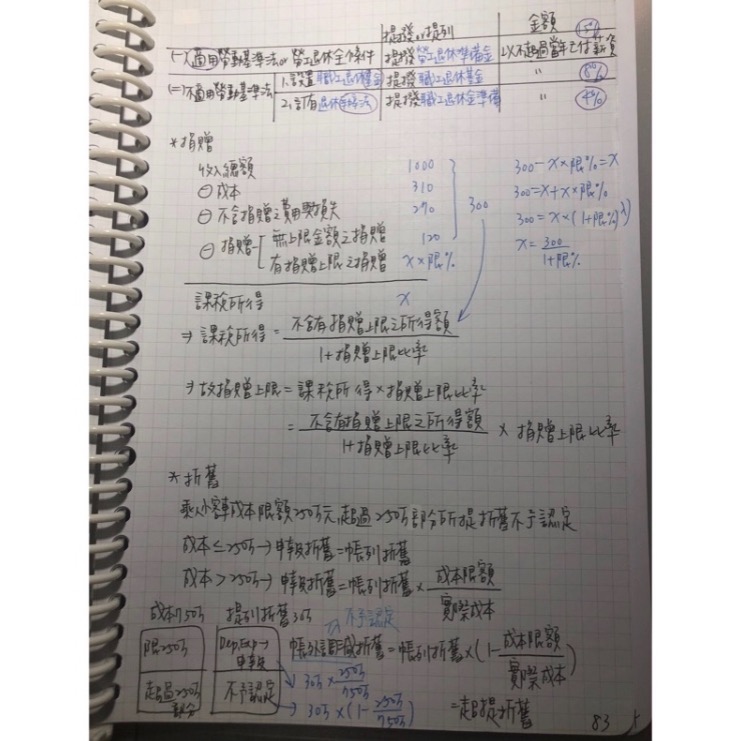 提撥or提列 金額
(一)適用勞動基準法or勞工退休金條件 提撥勞工退休準備金 以不超過當年已付薪資 15%
(二)不適用勞動基準法 1.設置職工退休基金 提撥職工退休基金 〃 8%
2.訂有退休辦法 提撥職工退休金準備 〃 4%
*捐贈
收入總額 1000
⊖成本 310
⊖不含捐贈之費用與損失 270
⊖捐贈 無上限金額之捐贈 120
有捐贈上限之捐贈 X×限%
300
課稅所得 X
300-X×限%=X
300=X+X×限%
300=X×(1+限%)
X=300/1+限%
⇒課稅所得=不含有捐贈上限之所得額/1+捐贈上限比率
⇒故捐贈上限=課稅所得×捐贈上限比率
=不含有捐贈上限之所得額/1+捐贈上限比率×捐贈上限比率
*折舊
乘人小客車成本限額250万元,超過250万部分所提折舊不予認定
成本≤250万→申報折舊=帳列折舊
成本>250万→申報折舊=帳列折舊×成本限額/實際成本
成本750万 提列折舊30万
不予認定
限250万 Dep.Exp→申報
超過250万部分 不予認定
帳外調減折舊=帳列折舊×(1-成本限額/實際成本)
30万×250万/750万
→30万×(1-250万/750万)
=超提折舊
83